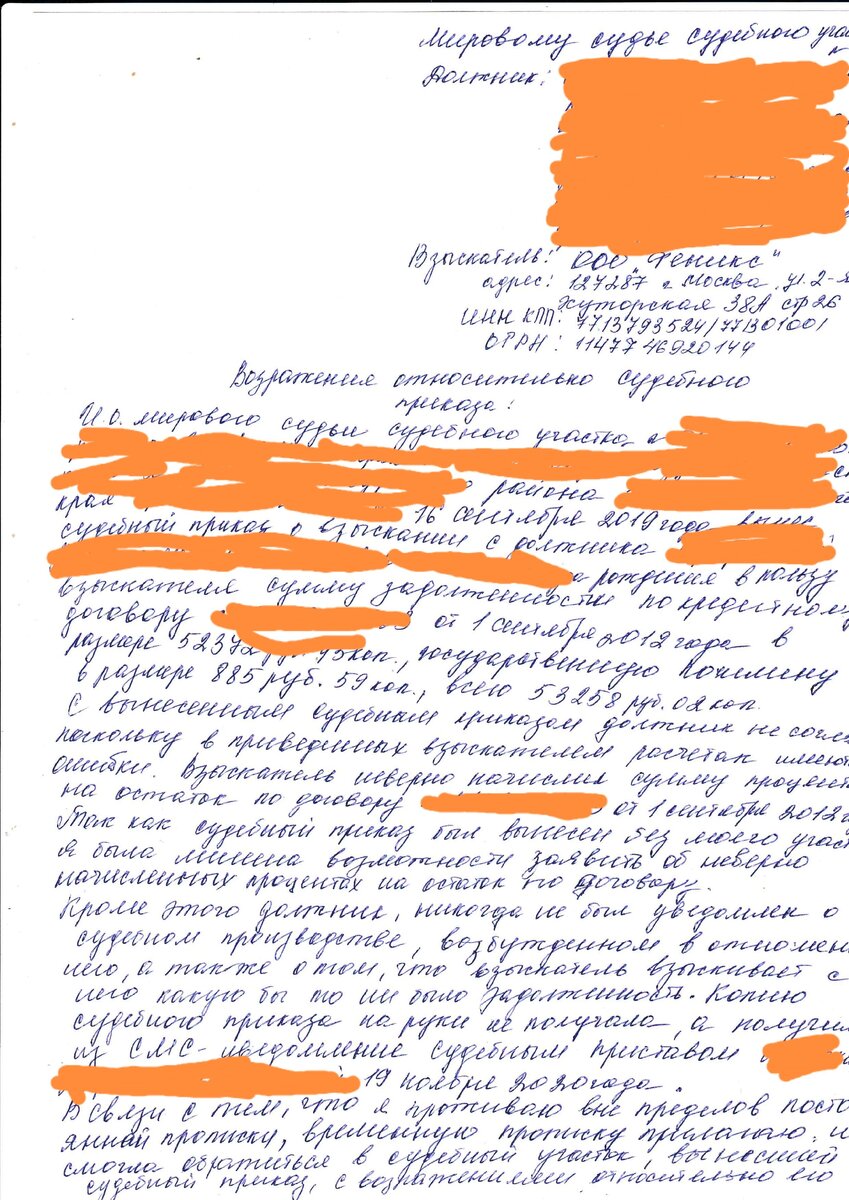 Мировому судье судебного учас
Должник:
Взыскатель: ООО „Феникс"
адрес: 127287 г Москва, ул. 2-я
Хуторская 38А стр 26
ИНН КПП: 7713793524/771301001
ОГРН: 1147746920144
Возражения относительно судебного
приказа:
И.О. мирового судьи судебного участка
района
края
16 сентября 2019 года вынес
судебный приказ о взыскании с должника
рождения в пользу
взыскателя сумму задолженности по кредитному
договору от 1 сентября 2012 года в
размере 52372 коп., государственную пошлину
в размере 885 руб. 59 коп., всего 53258 руб. 02 коп.
С вынесенным судебным приказом должник не соглас
поскольку в приведенных взыскателем расчетах имеют
ошибки. Взыскатель неверно начислил сумму процент
на остаток по договору от 1 сентября 2012 г
Так как судебный приказ был вынесен без моего участ
я была лишена возможности заявить об неверно
начисленных процентах на остаток по договору.
Кроме этого должник, никогда не был уведомлен о
судебном производстве, возбужденном в отношен
него, а также о том, что взыскатель взыскивает с
него какую бы то ни было задолженность. Копию
судебного приказа на руки не получала, а получил
из СМС-уведомление судебным приставом
19 ноября 2020 года.
В связи с тем, что я проживаю вне пределов посто
янной прописки, временную прописку прилагаю. н
смогла обратиться в судебный участок, вынесший
судебный приказ, с возражениями относительно его